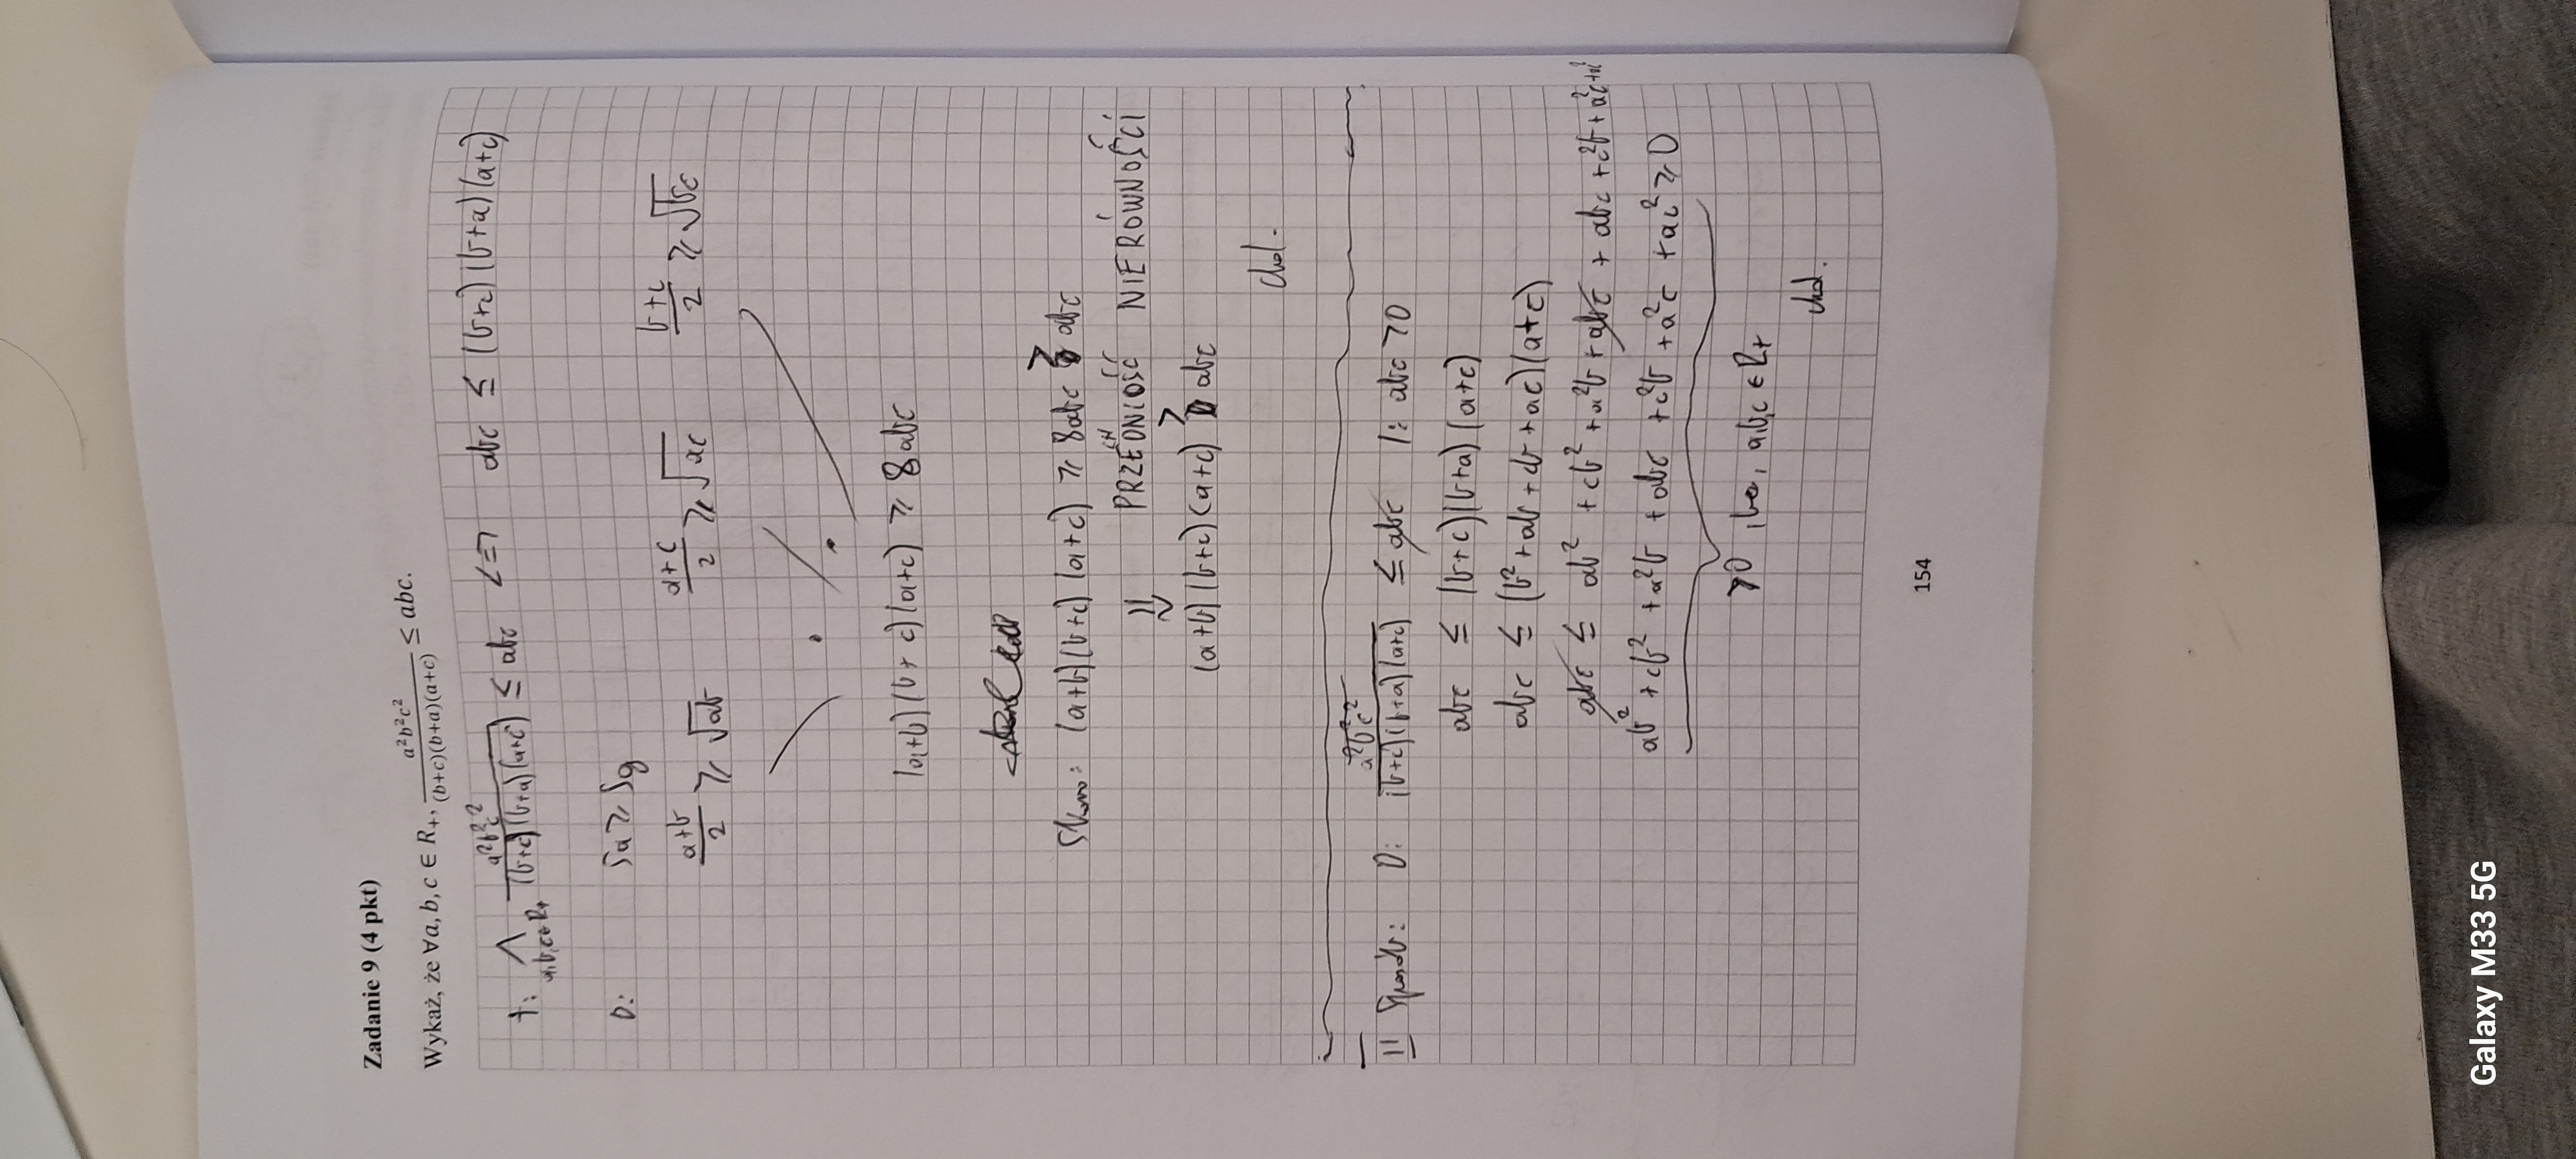 Zadanie 9 (4 pkt)
Wykaż, że ∀a, b, c ∈ R₊, a²b²c²/((b+c)(b+a)(a+c)) ≤ abc.
T: ⋀ a,b,c∈R₊ a²b²c²/((b+c)(b+a)(a+c)) ≤ abc <=> abc ≤ (b+c)(b+a)(a+c)
D: Sa ≥ Sg
(a+b)/2 ≥ √ab (a+c)/2 ≥ √ac (b+c)/2 ≥ √bc
(a+b)(b+c)(a+c) ≥ 8abc
Skoro: (a+b)(b+c)(a+c) ≥ 8abc > abc
PRZECHODNIOŚĆ NIERÓWNOŚCI
⇓
(a+b)(b+c)(a+c) > abc
cnd.
II Sposób: D: a²b²c²/((b+c)(b+a)(a+c)) ≤ abc /: abc > 0
abc ≤ (b+c)(b+a)(a+c)
abc ≤ (b²+ab+cb+ac)(a+c)
abc ≤ ab²+cb²+a²b+abc+abc+c²b+a²c+ac²
ab²+cb²+a²b+abc+c²b+a²c+ac² ≥ 0
>0, bo, a,b,c ∈ R₊
cnd.
154
Galaxy M33 5G